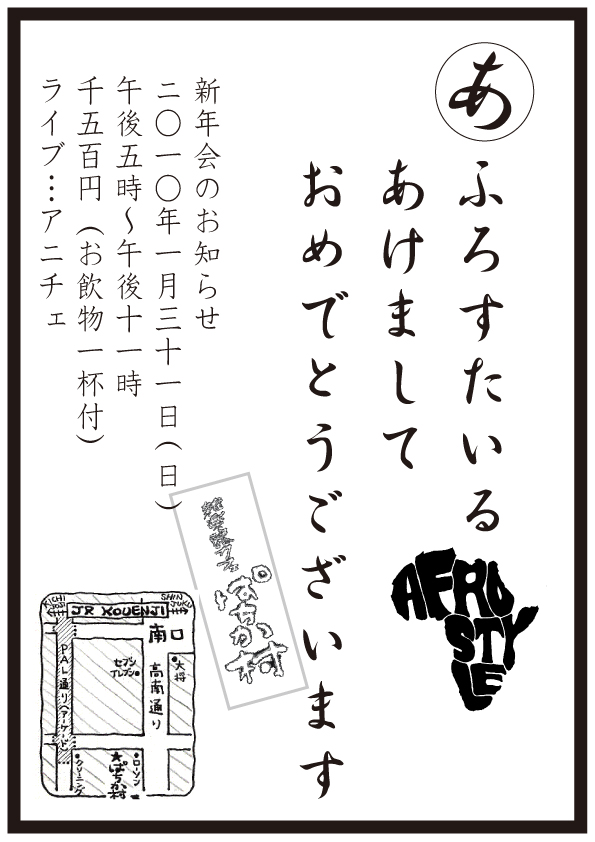 あ
ふろすたいる
あけまして
おめでとうございます
新年会のお知らせ
二〇一〇年一月三十一日（日）
午後五時～午後十一時
千五百円（お飲物一杯付）
ライブ…アニチェ
AFRO
STY
LE
カフェ
ぱちか村
KICHI
JOJI
JR KOUENJI
SHIN
JUKU
南口
PAL通り(アーケード)
高南通り
セブン
イレブン
大将
クリーニング
★ぱちか村
ローソン